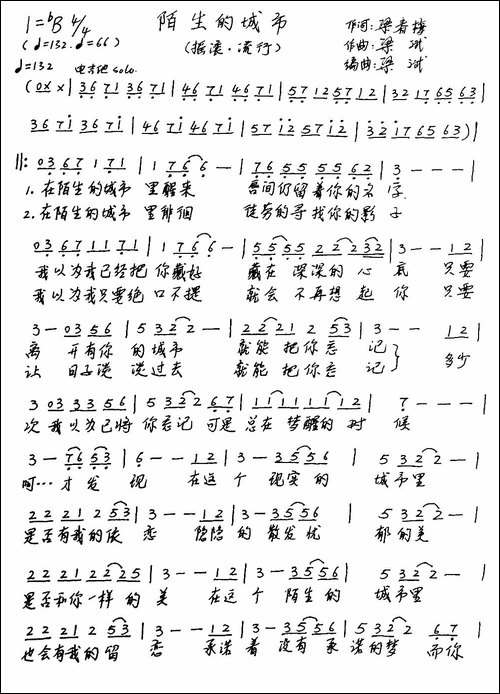 1=ᵇB 4/4 陌生的城市 作词:梁春搂
(♩=132.♩=66) (摇滚·流行) 作曲:梁斌
♩=132 电吉他solo. 编曲:梁斌
(0xx|3671 3671|4671 4671|57125712|32176563|
3671 3671|4671 4671|5712 5712|32176563)|
||:0367 171|1766-|76 55 5562|3---|
1.在陌生的城市 里醒来 唇间仍留着你的名字
2.在陌生的城市 里徘徊 徒劳的寻找你的影子
0367 1171|1766-|5555 2232|3--12|
我以为我已经把你藏好 藏在深深的心底 只要
我以为我只要绝口不提 就会不再想起你 只要
3-0356|5322-|22212 53|3-- 12|
离开有你的城市 就能把你忘记} 多少
让日子淡淡过去 就能把你忘记
3 03 33 56|532267|11111112|7---|
次我以为已将你忘记可是总在梦醒的时候
3-7653|6--12|3-3556|5322-|
呵…才发现 在这个现实的 城市里
2221253|3--12|3-3556|5322-|
是否有我的依恋 隐隐的散发忧郁的美
22212225|3--12|3-3556|5322-|
是否和你一样的美 在这个陌生的 城市里
2221253|3--12|3-3556|532267|
也会有我的留恋 承诺着没有承诺的梦 而你